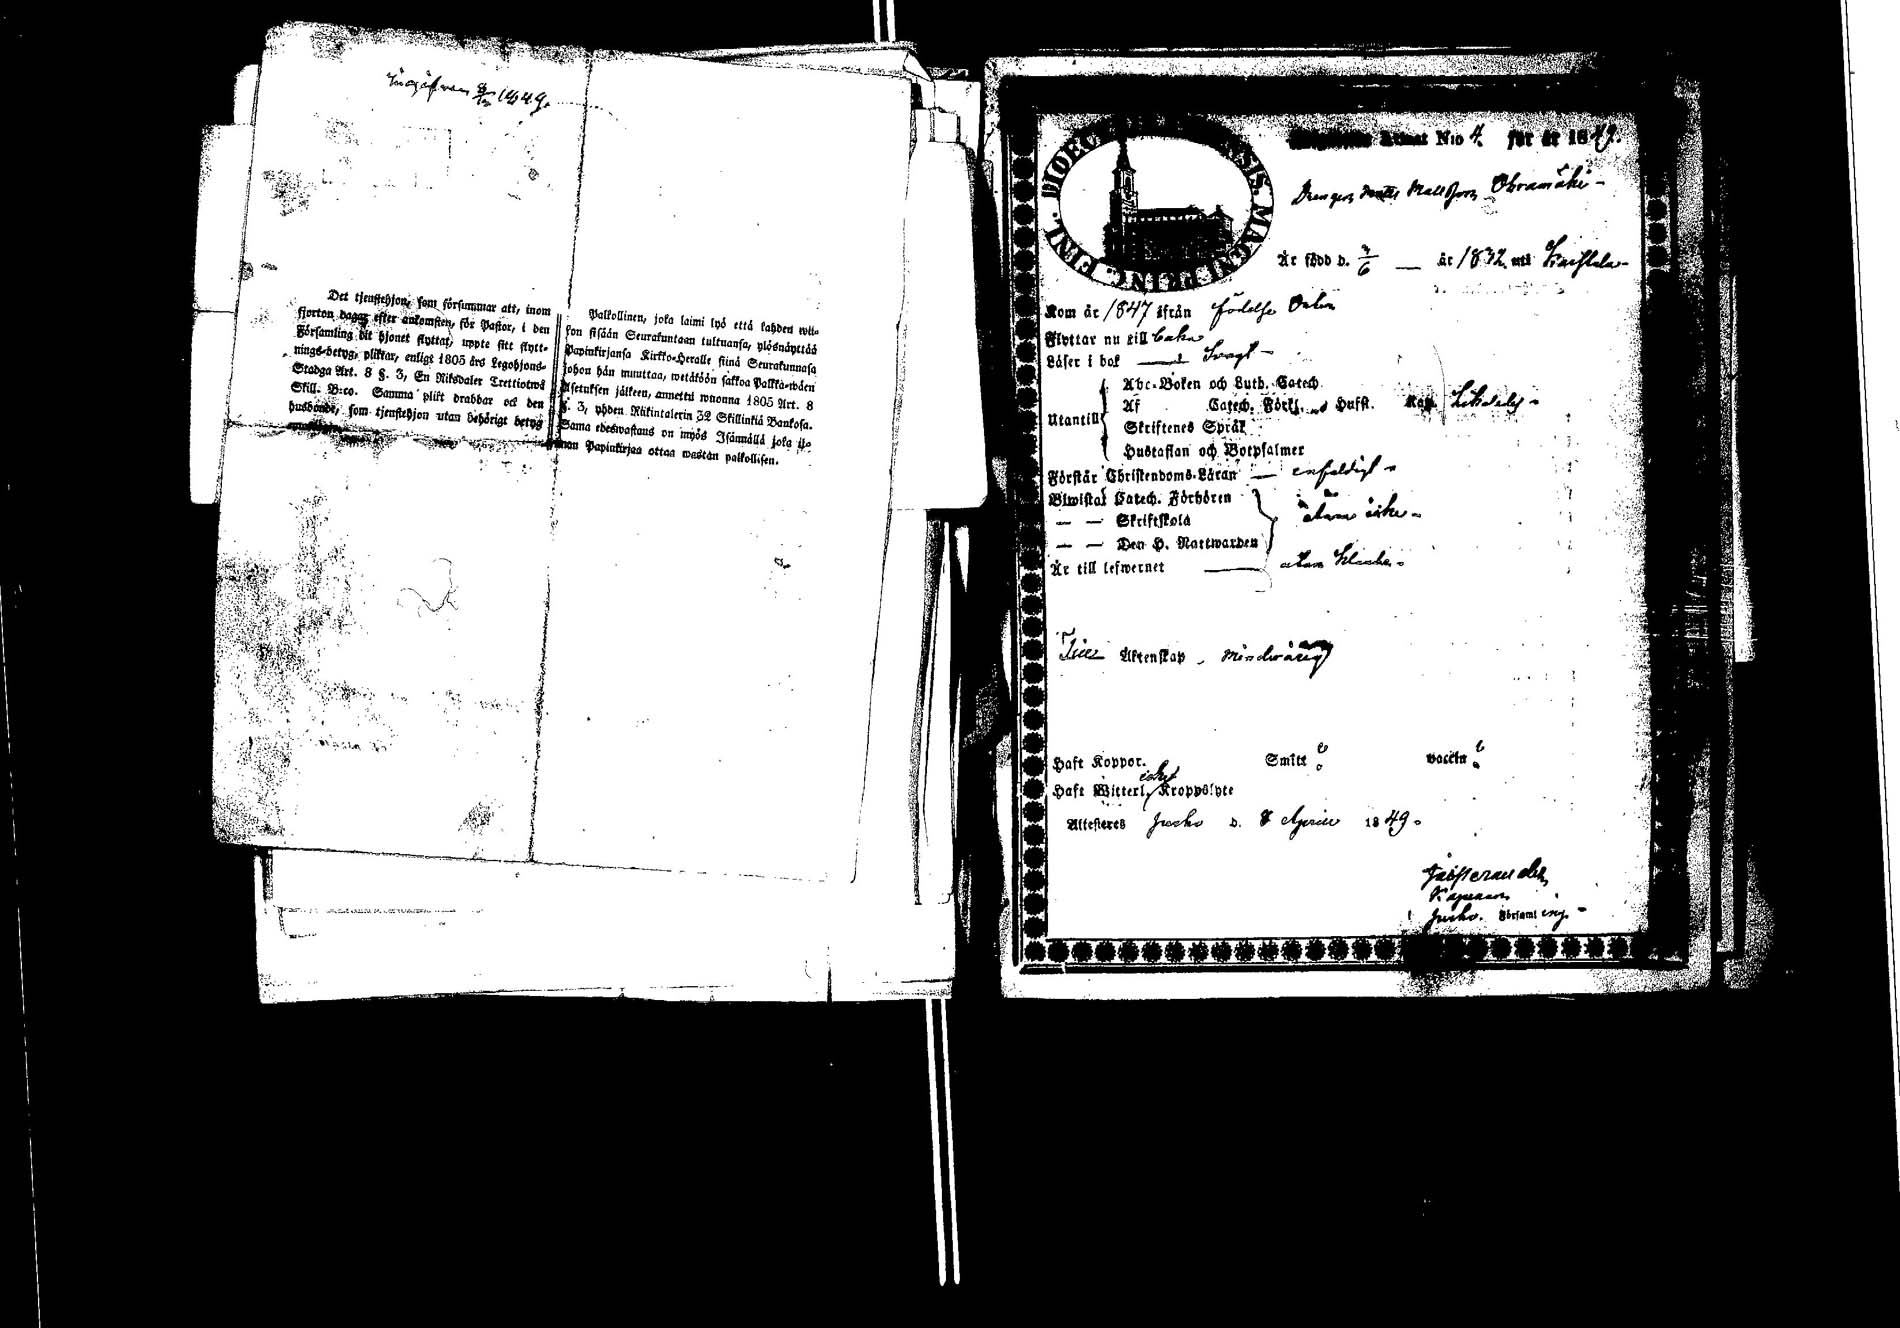 1849.
Det tjenstehjon, som försummar att, inom
fjorton dagar efter ankomsten, för Pastor, i den
Församling dit hjonet flyttat, uppte sitt flytt-
nings-betyg, pliktar, enligt 1805 års Legohjons-
Stadga Art. 8 §. 3, En Riksdaler Trettiotwå
Skill. B:co. Samma plikt drabbar ock den
husbonde, som tjenstehjon utan behörigt betyg
Palkollinen, joka laimi lyö että kahden wii-
kon sisään Seurakuntaan tultuansa, ylösnäyttää
Papinkirjansa Kirkko-Herralle siinä Seurakunnasa
johon hän muuttaa, wetäköön sakkoa Palkka-wäen
Asetuksen jälkeen, annettu wuonna 1805 Art. 8
§. 3, yhden Riikintalerin 32 Skillinkiä Bankosa.
Sama edeswastaus on myös Isännällä joka il-
man Papinkirjaa ottaa wastan palkollisen.
DIOEC FINL. MAGNI PRINC.
Attest N:o 4. för år 1849.
Drengen Matts Mattsson
Är född d. 3/6 — år 1832 uti
Kom år 1847 ifrån födelse Orten
Flyttar nu till
Läser i bok — Svagt –
Utantill
Abc-Boken och Luth. Catech.
Af Catech. Förkl. och Hust.
Skriftenes Språk
Hustaflan och Botpsalmer
Förstår Christendoms-Läran — enfaldigt
Biwistat Catech. Förhören
— — Skriftskola
— — Den H. Nattwarden
Är till lefwernet — utan
Äktenskap, minderårig
Haft Koppor. Smitt Vaccin
Haft Witterl. icke Kroppslyte
Attesteras d. 8 April 1849.
Församling.